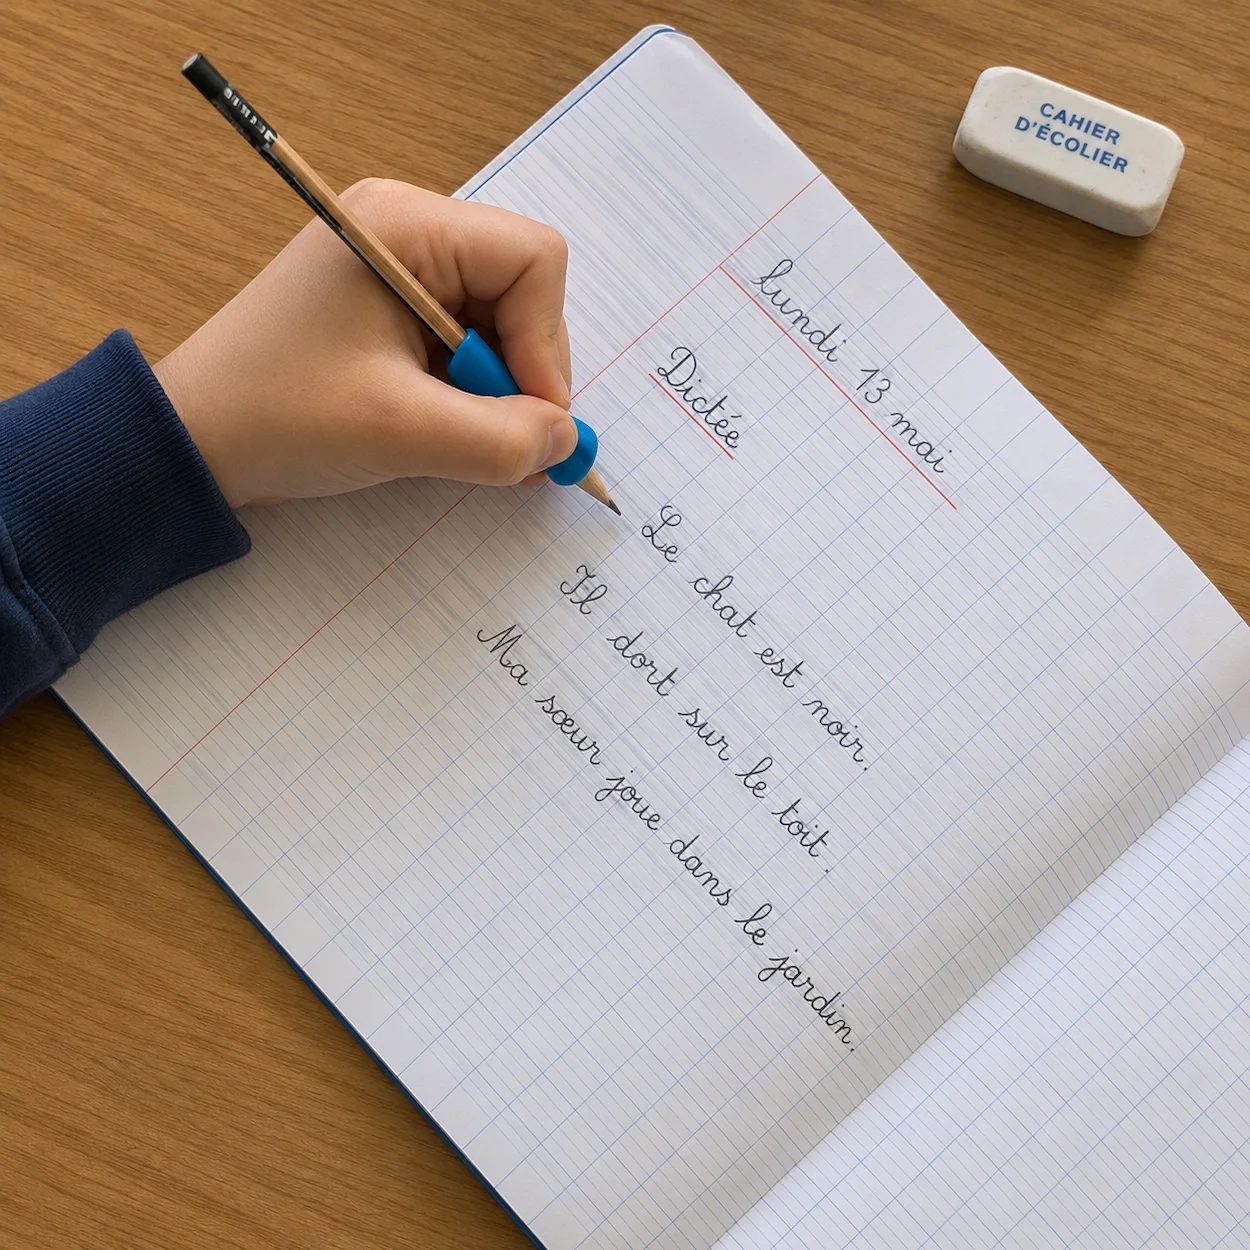 CAHIER
D'ÉCOLIER
lundi 13 mai
Dictée
Le chat est noir.
Il dort sur le toit.
Ma sœur joue dans le jardin.